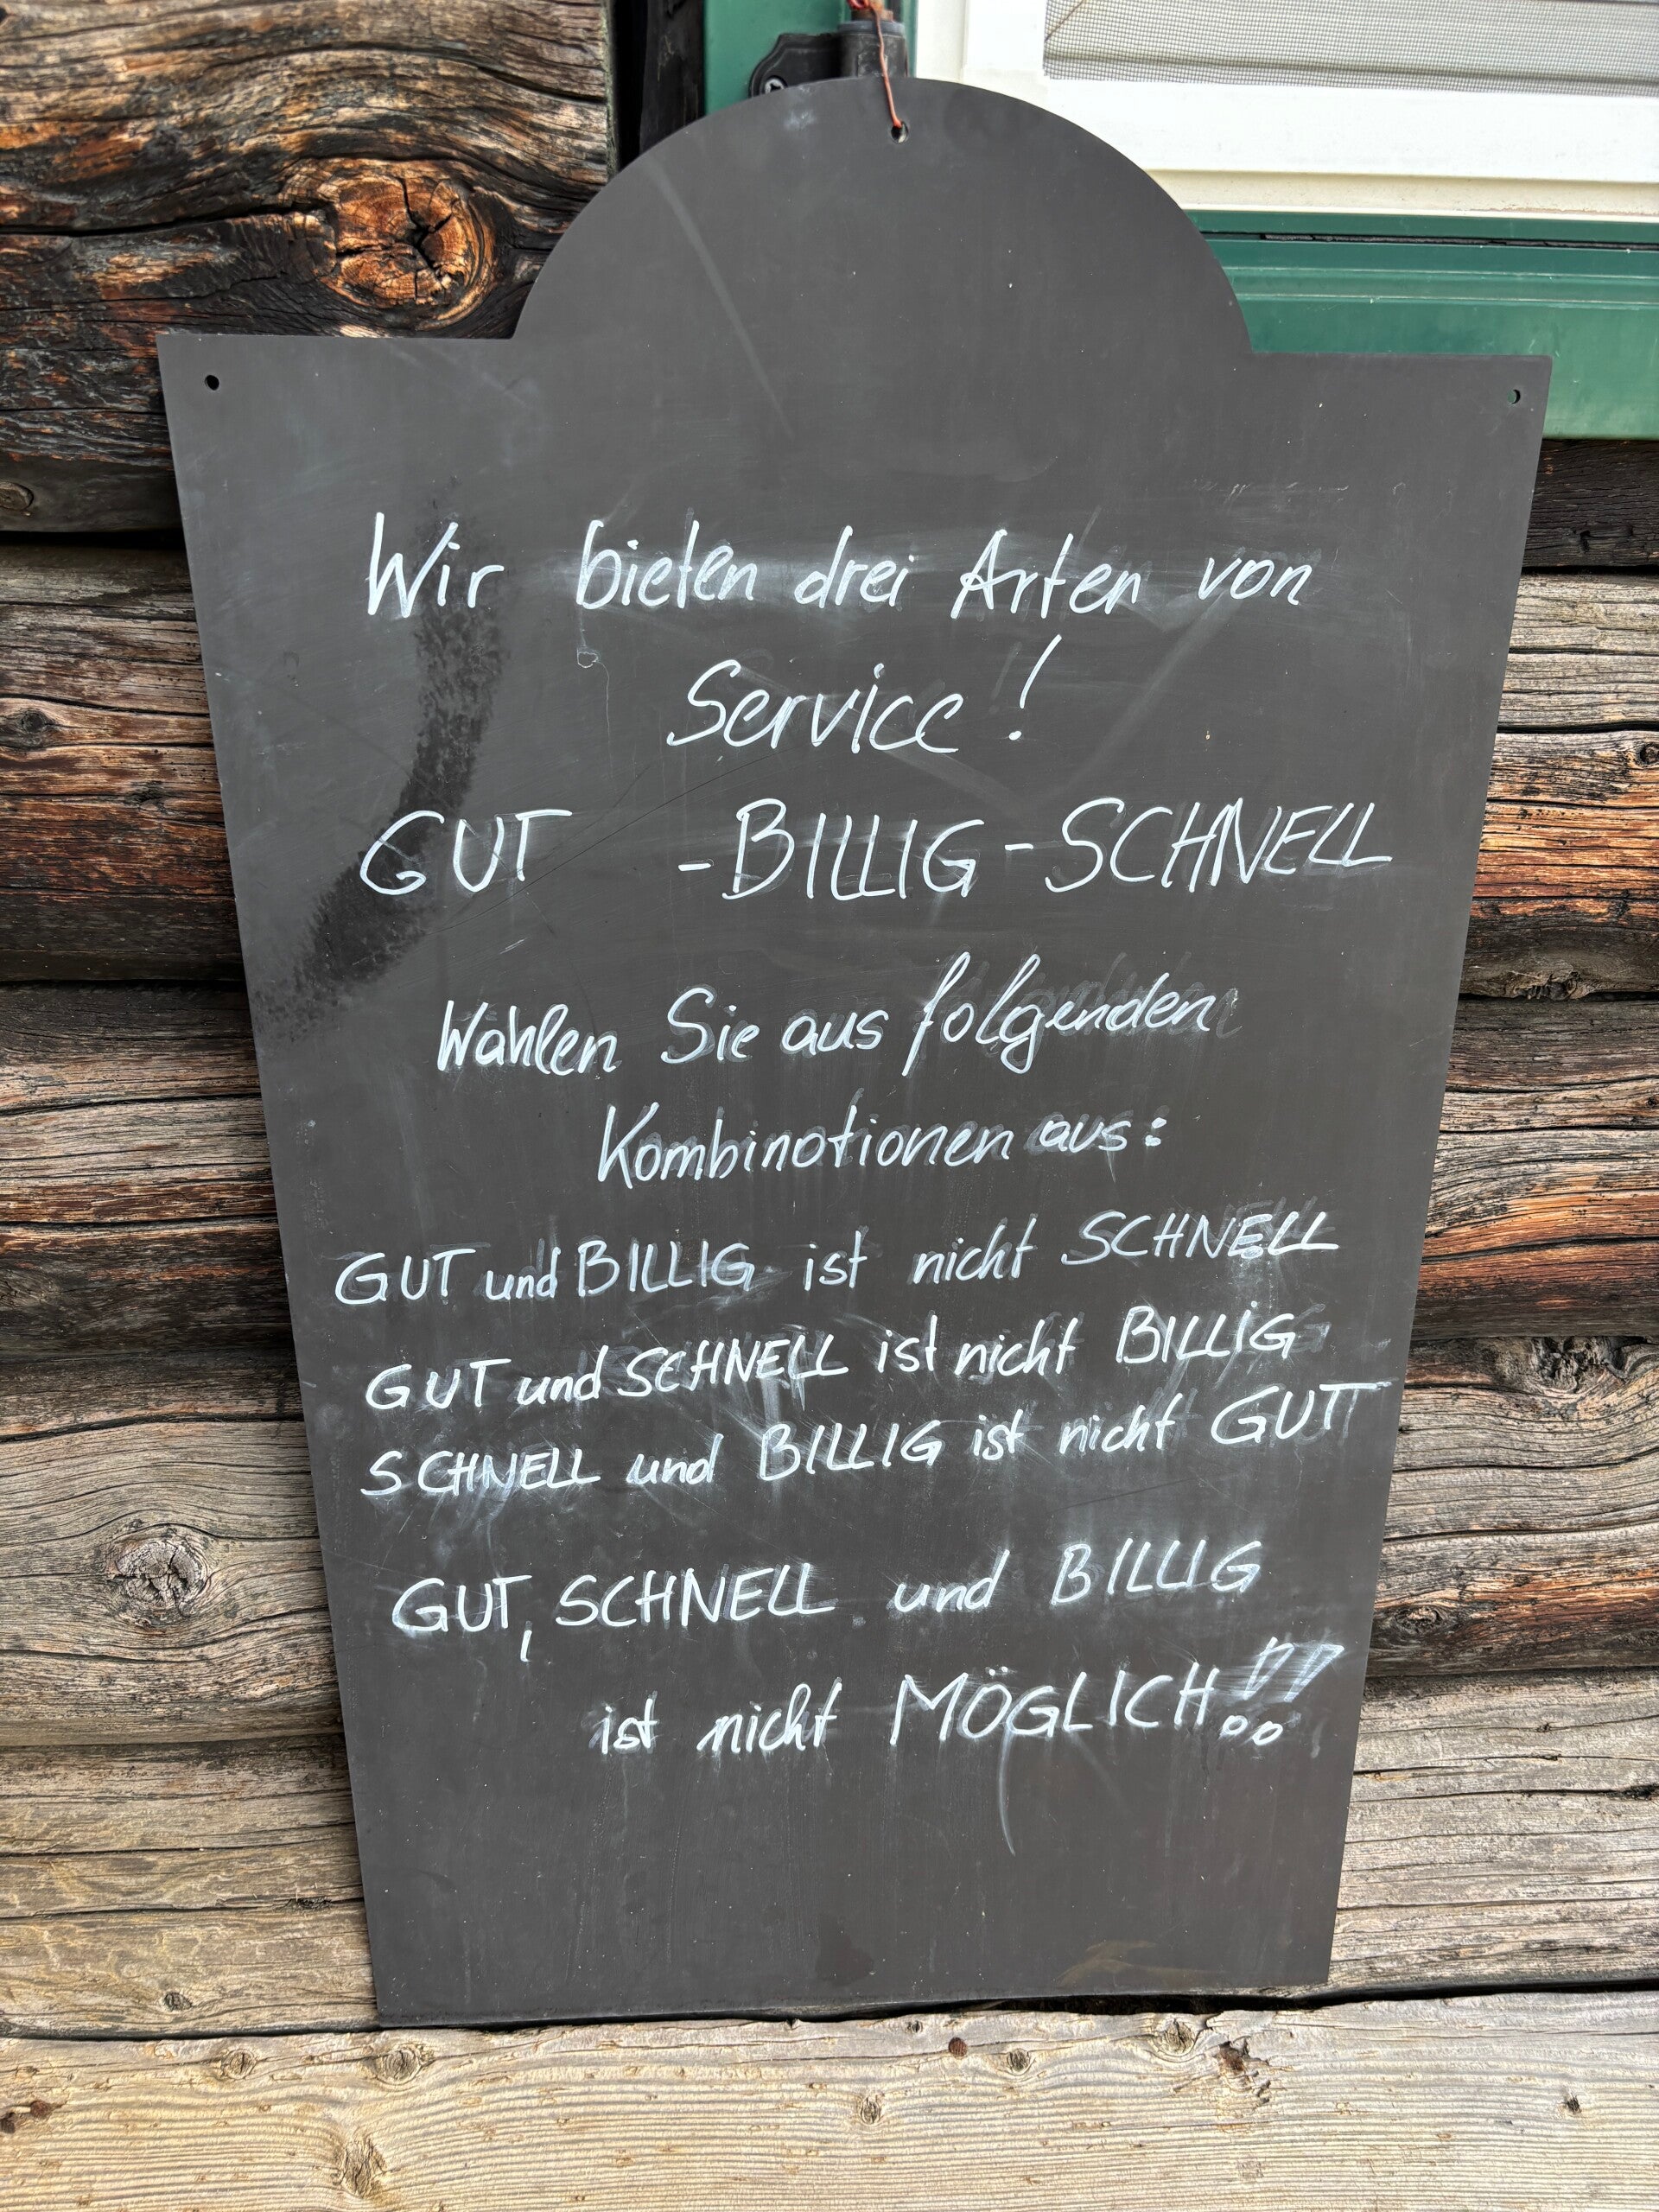 Wir bieten drei Arten von
Service!
GUT -BILLIG-SCHNELL
Wahlen Sie aus folgenden
Kombinationen aus:
GUT und BILLIG ist nicht SCHNELL
GUT und SCHNELL ist nicht BILLIG
SCHNELL und BILLIG ist nicht GUT
GUT, SCHNELL und BILLIG
ist nicht MÖGLICH!!